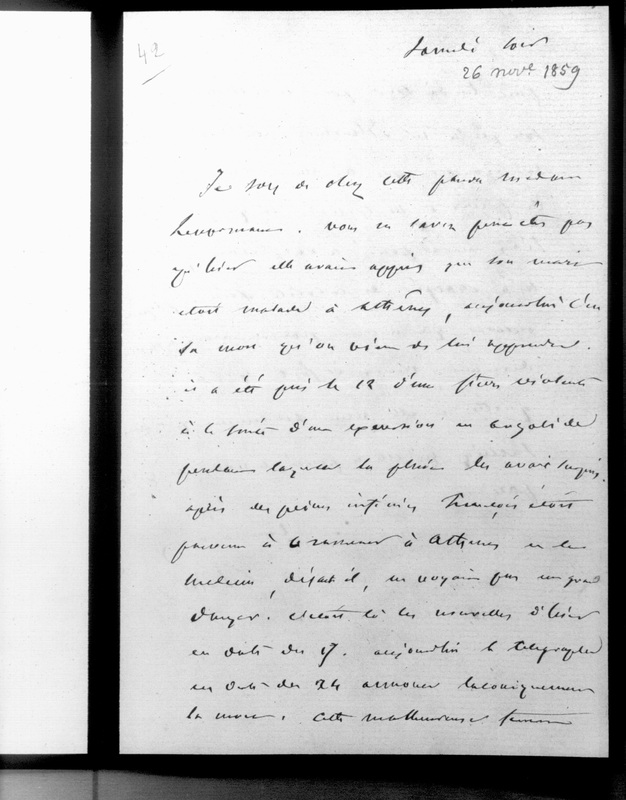 42
Samedi soir
26 nov.e 1859
Je sors de chez cette pauvre madame
Lenormant. vous ne savez peut être pas
qu'hier elle avait appris que son mari
étoit malade à Athênes, aujourdhui c'est
sa mort qu'on vient de lui apprendre.
il a été pris le 12 d'une fièvre violente
à la suite d'une excursion en argolide
pendant laquelle la pluie les avait surpris.
après des peines infinies François étoit
parvenu à le ramener à Athenes et les
médecins, disait il, ne voyaient pas un grand
danger. c'étoit là les nouvelles d'hier
en date du 17. aujourdhui le telegraphe
en date du 24 annonce laconiquement
la mort. cette malheureuse femme